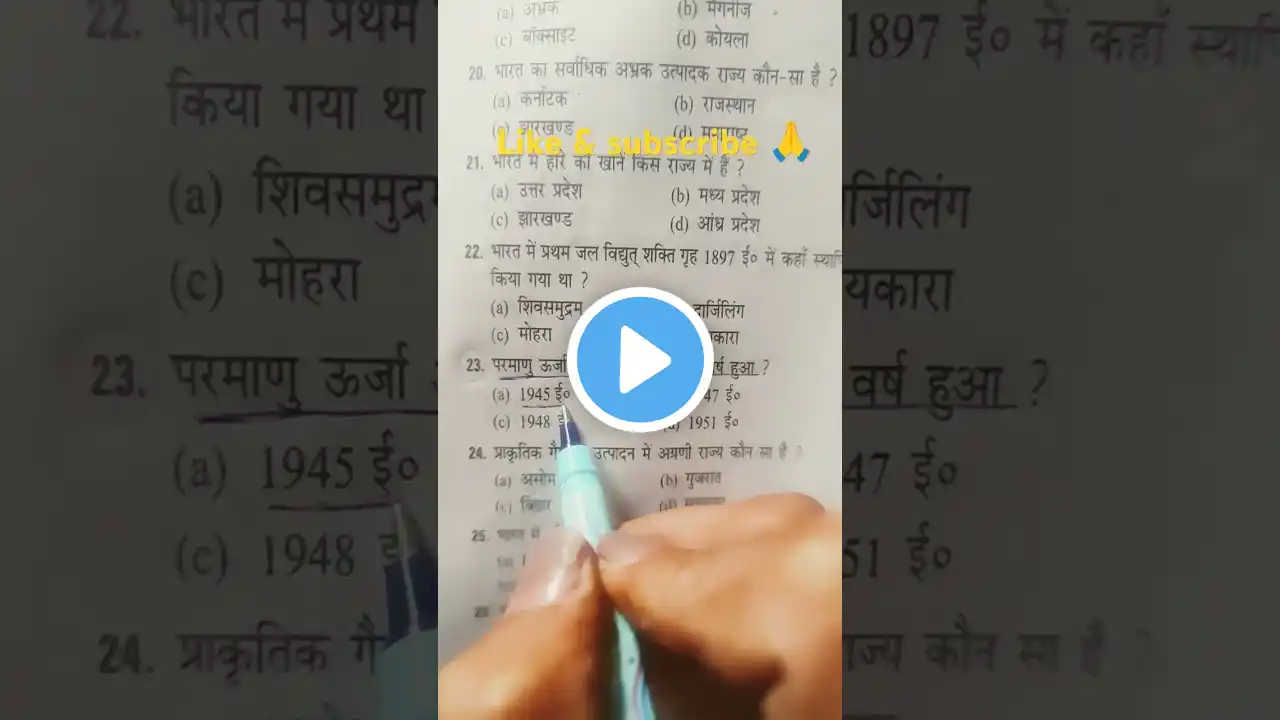 (a) अभ्रक (b) मैंगनीज
(c) बॉक्साइट (d) कोयला
20. भारत का सर्वाधिक अभ्रक उत्पादक राज्य कौन-सा है ?
(a) कर्नाटक (b) राजस्थान
(c) झारखण्ड (d)
Like & subscribe 🙏
21. भारत में हीरे की खानें किस राज्य में हैं ?
(a) उत्तर प्रदेश (b) मध्य प्रदेश
(c) झारखण्ड (d) आंध्र प्रदेश
22. भारत में प्रथम जल विद्युत् शक्ति गृह 1897 ई० में कहाँ
किया गया था ?
(a) शिवसमुद्रम
(c) मोहरा
23. परमाणु ऊर्जा वर्ष हुआ ?
(a) 1945 ई० 47 ई०
(c) 1948 (d) 1951 ई०
24. प्राकृतिक उत्पादन में अग्रणी राज्य कौन सा है ?
(a) असोम (b) गुजरात
(c) बिहार
25.